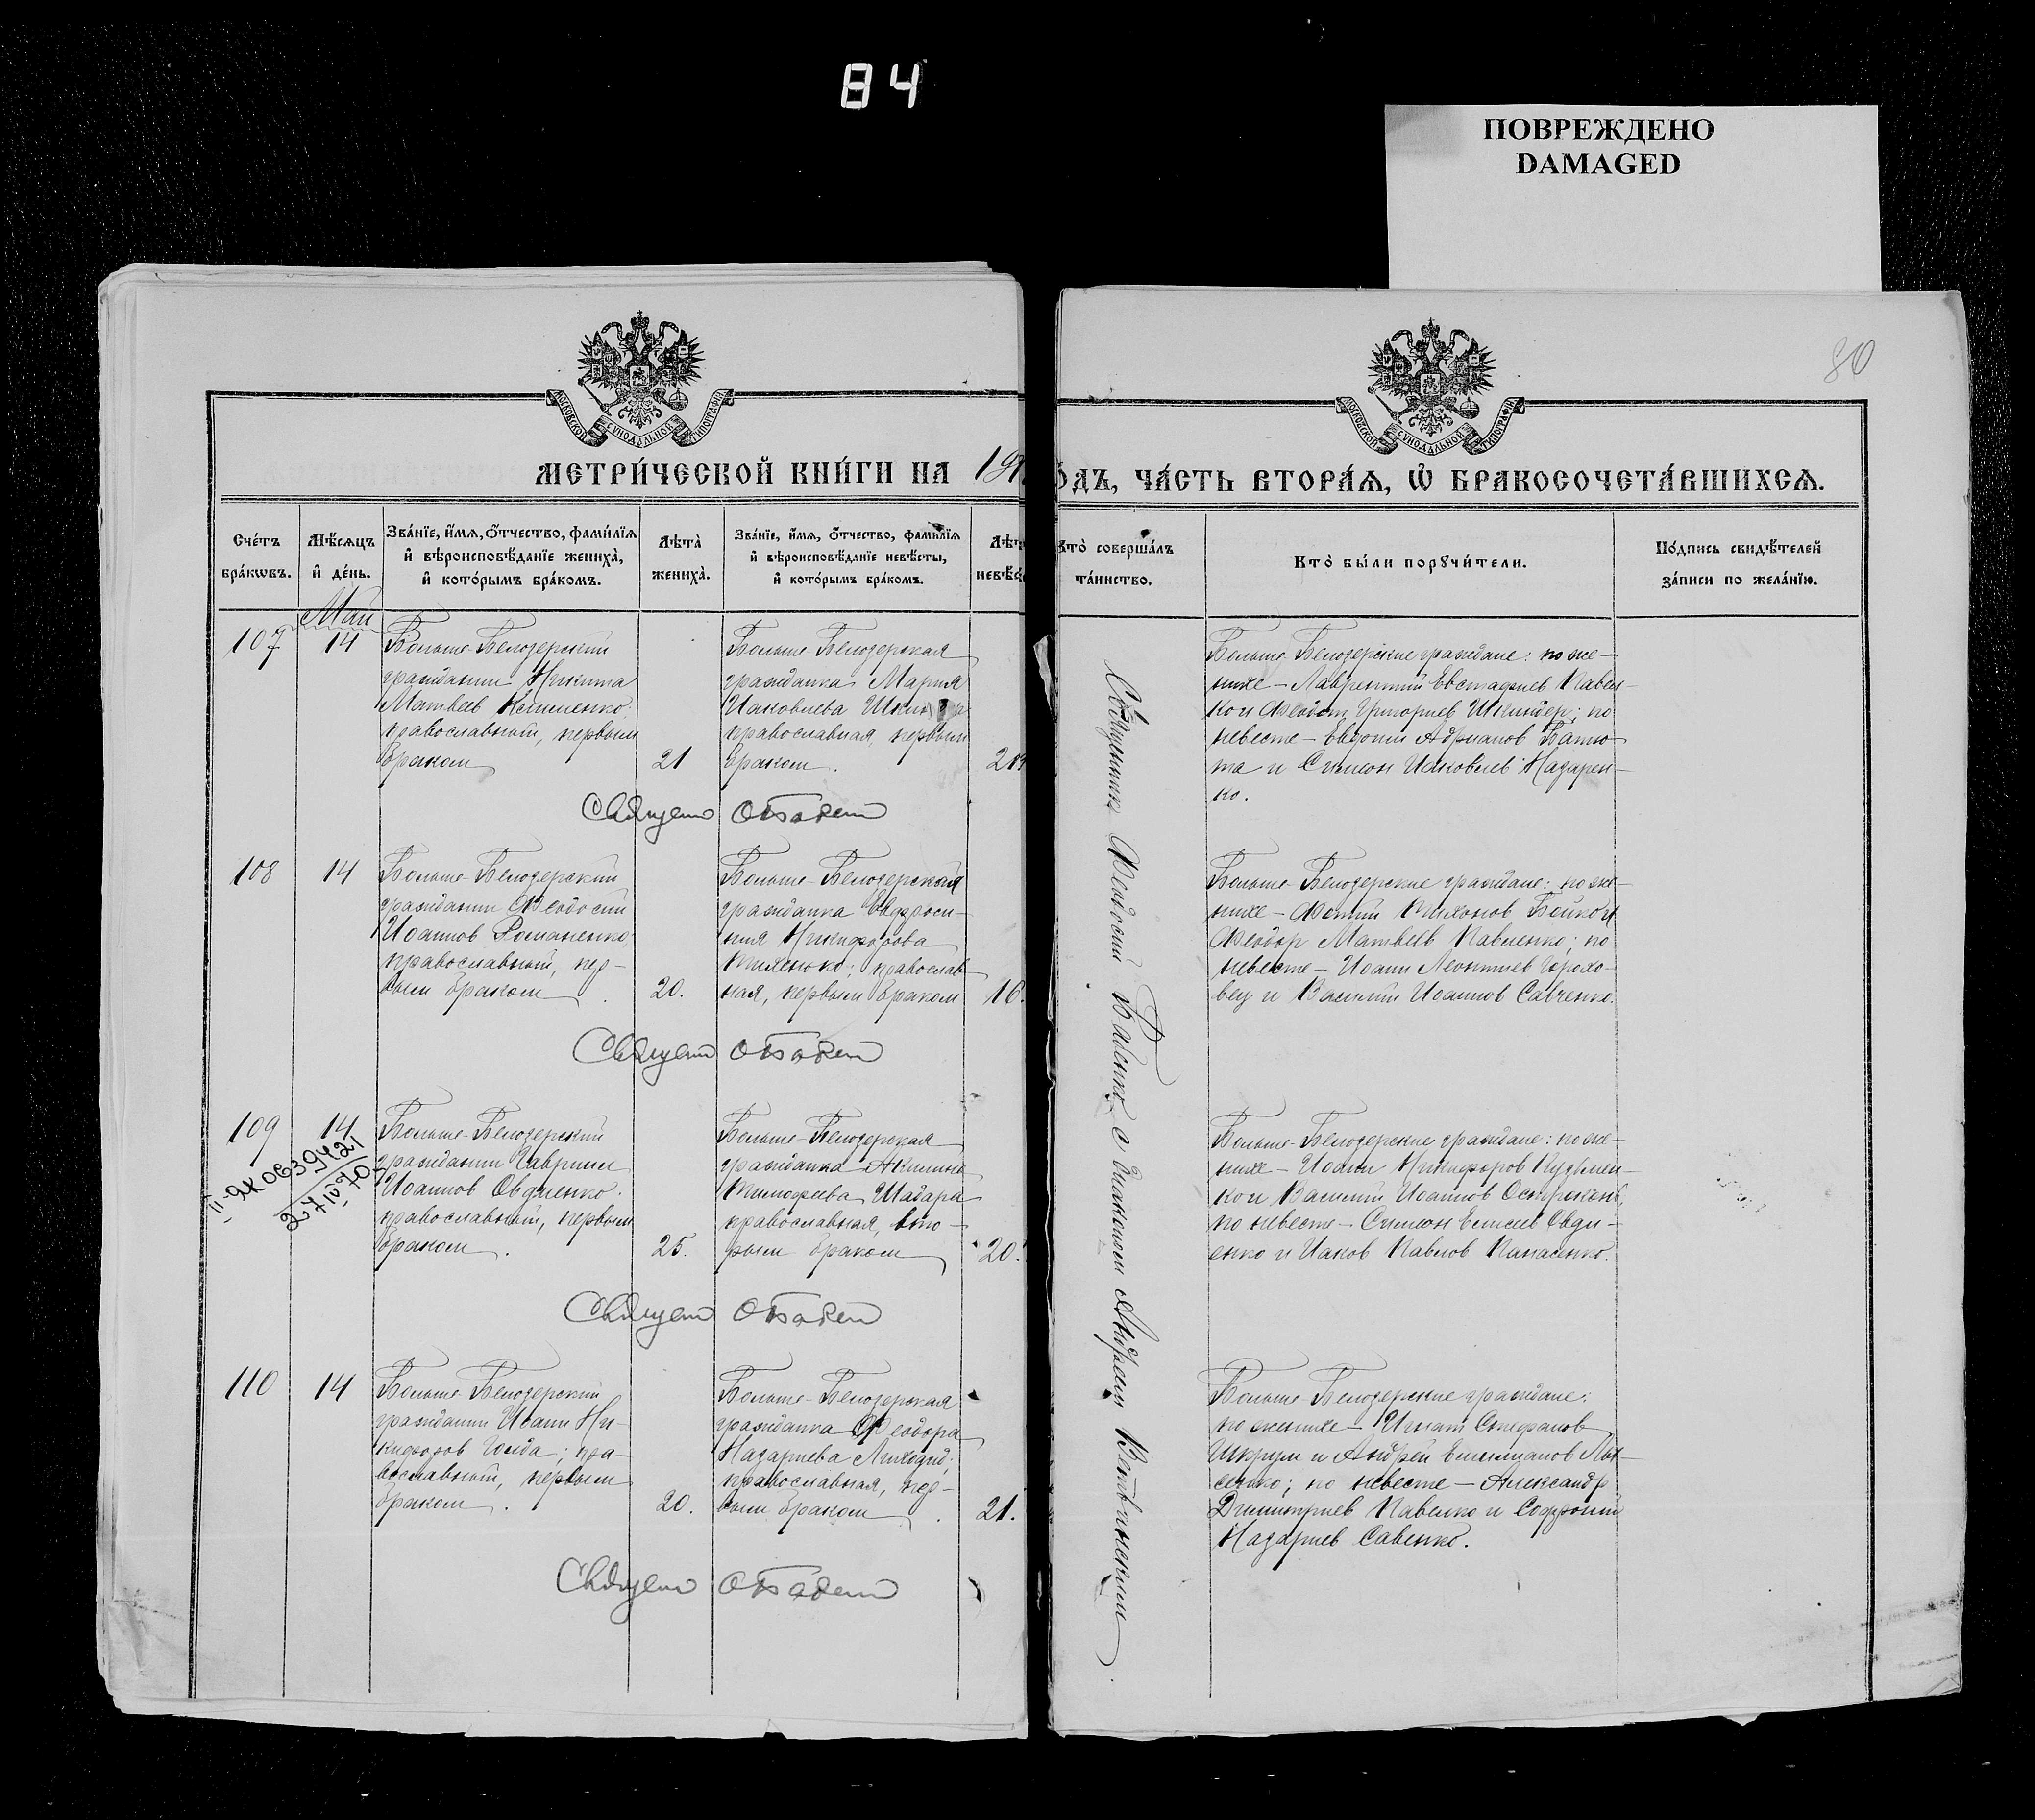 84
ПОВРЕЖДЕНО
DAMAGED
80
МОСКОВСКОЙ СѴНОДАЛЬНОЙ ТИПОГРАФІИ
МОСКОВСКОЙ СѴНОДАЛЬНОЙ ТИПОГРАФІИ
МЕТРИ́ЧЕСКОЙ КНИ́ГИ НА 19
ѠДЪ, ЧА́СТЬ ВТОРА́Ѧ, Ѽ БРАКОСОЧЕТА́ВШИХСѦ.
Сче́тъ бра́кѡвъ.
Мѣ́сѧцъ и҆ де́нь.
Зва́нїе, и҆́мѧ, ѻ҆́тчество, фами́лїѧ и҆ вѣроисповѣ́данїе жениха̀, и҆ кото́рымъ бра́комъ.
Лѣ́та̀ жениха̀.
Зва́нїе, и҆́мѧ, ѻ҆́тчество, фами́лїѧ и҆ вѣроисповѣ́данїе невѣ́сты, и҆ кото́рымъ бра́комъ.
Кто̀ соверша́лъ та́инство.
Кто̀ бы́ли порꙋчи́тели.
По́дпись свидѣ́телей за́писи по жела́нїю.
Май
107
14
Больше-Белозерский
гражданин Никита
Матвеев Клименко,
православный, первым
браком
21
Больше-Белозерская
гражданка Мария
Иаковлева
православная, первым
браком.
Больше-Белозерские граждане: по же-
нихе – Лаврентий Евстафиев Павлен-
ко и Феодот Григориев Шкиндер; по
невесте – Евдоким Адрианов Батю-
та и Симеон Иаковлев Назарен-
ко.
108
14
Больше-Белозерский
гражданин Феодосий
Иоаннов Романенко,
православный, пер-
вым браком
20.
Больше-Белозерская
гражданка Евфроси-
ния Никифорова
Тихенько; православ-
ная, первым браком
16.
Больше-Белозерские граждане: по же-
нихе – Фотий Тихонов Бойко и
Феодор Матвеев Павленко; по
невесте – Иоанн Леонтиев Горохо-
вец и Василий Иоаннов Савченко.
109
14
II-ЯК 0639421
27/IV 70
Больше-Белозерский
гражданин Гавриил
Иоаннов Овдиенко.
православный, первым
браком.
25.
Больше-Белозерская
гражданка Акилина
Тимофеева Шадара
православная, вто-
рым браком
20.
Больше-Белозерские граждане: по же-
нихе – Иоанн Никифоров Кузьмен-
ко и Василий Иоаннов
по невесте – Симеон Елисеев Овди-
енко и Иаков Павлов Панасенко.
110
14
Больше-Белозерский
гражданин Иоанн Ни-
кифоров Гойда; пра-
вославный, первым
браком.
20.
Больше-Белозерская
гражданка Феодора
Назариева Лиходид;
православная, пер-
вым браком.
21.
Больше-Белозерские граждане:
по женихе – Игнат Стефанов
Шкрум и Андрей Емелианов Лы-
сенко; по невесте – Александр
Димитриев Павленко и Софроний
Назариев Савенко.
Священник Феодосий с диаконом Андреем